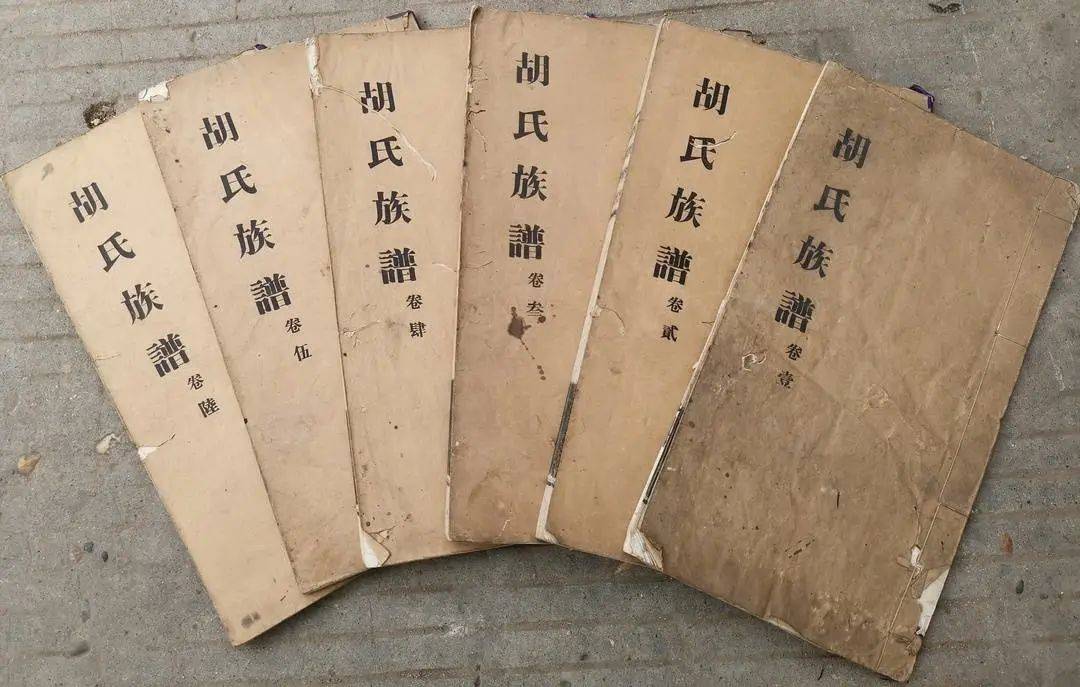 胡氏族譜 卷壹
胡氏族譜 卷貳
胡氏族譜 卷叁
胡氏族譜 卷肆
胡氏族譜 卷伍
胡氏族譜 卷陸